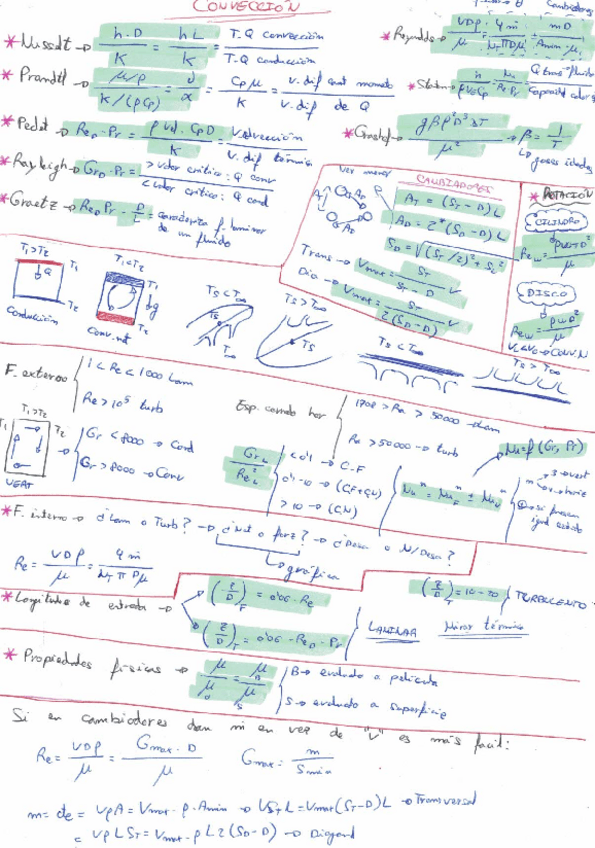 CONVECCIÓN
* Nusselt → h·D / K = hL / K = T.Q convección / T.Q conducción
* Reynolds → VDρ / μ = 4ṁ / NT πDμ = mD / Amin·μ
* Prandtl → μ/ρ / K/(ρCp) = υ / α = Cp μ / K = v. dif cant momento / v. dif de Q
* Stanton = h / ρ V Cp = Nu / Re Pr
* Peclet → ReD·Pr = ρ Vel. Cp D / K = V. advección / V. dif térmica
* Grashof → gβρ²D³ΔT / μ² → β = 1/T
↳ gases ideales
* Rayleigh → GrD·Pr = > valor crítico: Q conv
< valor crítico: Q cond
* Graetz → ReD Pr · D/L = caracteriza f. laminar
de un fluido
CAMBIADORES
AT = (ST − D) L
AD = 2*(SD − D) L
SD = √((ST/2)² + SL²)
Trans → Vmax = ST / ST − D · V
Dia → Vmax = ST / 2(SD − D) · V
* ROTACIÓN
CILINDRO
Rew = ρωπD² / μ
DISCO
Rew = ρωD² / μ
T1>T2
T1
Q
T2
Conducción
T1<T2
T1
g
T2
Conv. nat
Ts<T∞
T∞
Ts>T∞
Ts
Ts<T∞
Ts>T∞
F. externo
1 < Re < 1000 Lam
Re > 10⁵ turb
Esp. cerrado hor
1708 > Ra > 50000 → Lam
Ra > 50000 → turb
T1>T2
T1
T2
VERT
Gr < 8000 → Cond
Gr > 8000 → Conv
GrL / ReL²
<0'1 → C.F
0'1-10 → (C.F+C.N)
>10 → (C.N)
Nu = f (Gr, Pr)
Nuⁿ = NuFⁿ ± NuNⁿ
* F. interno → ¿Lam o Turb? → ¿Nat o forz? → ¿Desa o N/Desa?
↳ gráfica
Re = VDρ / μ = 4ṁ / NT π Dμ
* Longitud de entrada →
(Z/D)F = 0'06·Re
(Z/D)T = 0'06·ReD·Pr
LAMINAR
(Z/D)T = 10-20
TURBULENTO
Mirar térmica
* Propiedades físicas → μ/μ0 = μB/μS
B → evaluado a película
S → evaluado a superficie
Si en cambiadores dan ṁ en vez de "V" es más facil:
Re = VDρ / μ = Gmax·D / μ Gmax = m / Smin
m = cte = VρA = Vmax·ρ·Amin → VST L = Vmax(ST−D) L → Transversal
= VρLST = Vmax·ρL2(SD−D) → Diagonal